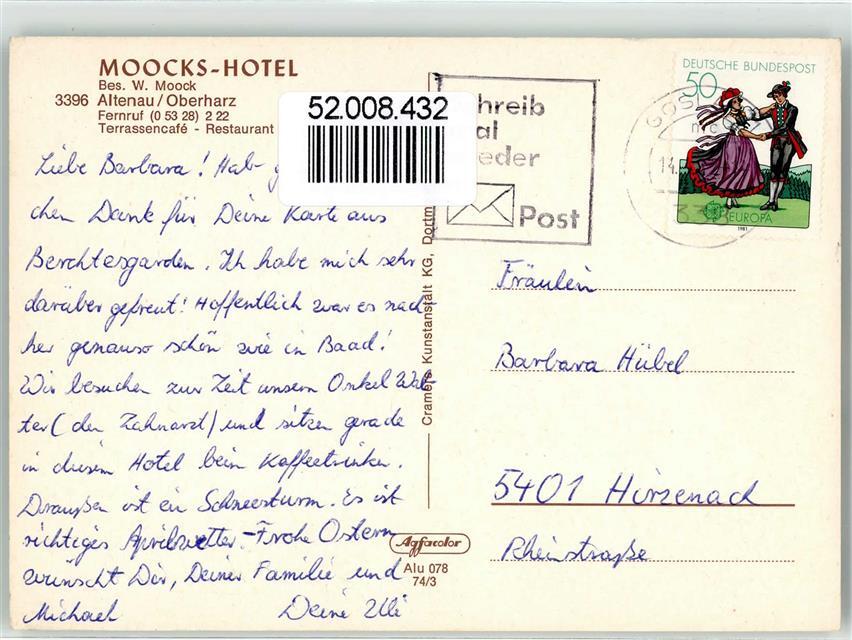 MOOCKS-HOTEL
Bes. W. Moock
3396 Altenau/Oberharz
Fernruf (0 53 28) 2 22
Terrassencafé - Restaurant
52.008.432
Liebe Barbara! Hab
chen Dank für Deine Karte aus
Berchtesgarden. Ich habe mich sehr
darüber gefreut! Hoffentlich war es nach-
her genauso schön wie in Baad!
Wir besuchen zur Zeit unsern Onkel Wal-
ter (den Zahnarzt) und sitzen gerade
in diesem Hotel beim Kaffeetrinken.
Draußen ist ein Schneesturm. Es ist
richtiges Aprilwetter. - Frohe Ostern
wünscht Dir, Deiner Familie und
Michael Deine Ulli
Cramers Kunstanstalt KG, Dortm
Agfacolor
Alu 078
74/3
chreib
al
eder
Post
DEUTSCHE BUNDESPOST
50
EUROPA
1981
GOSL
14.
338
Fräulein
Barbara Hübel
5401 Hirzenach
Rheinstraße